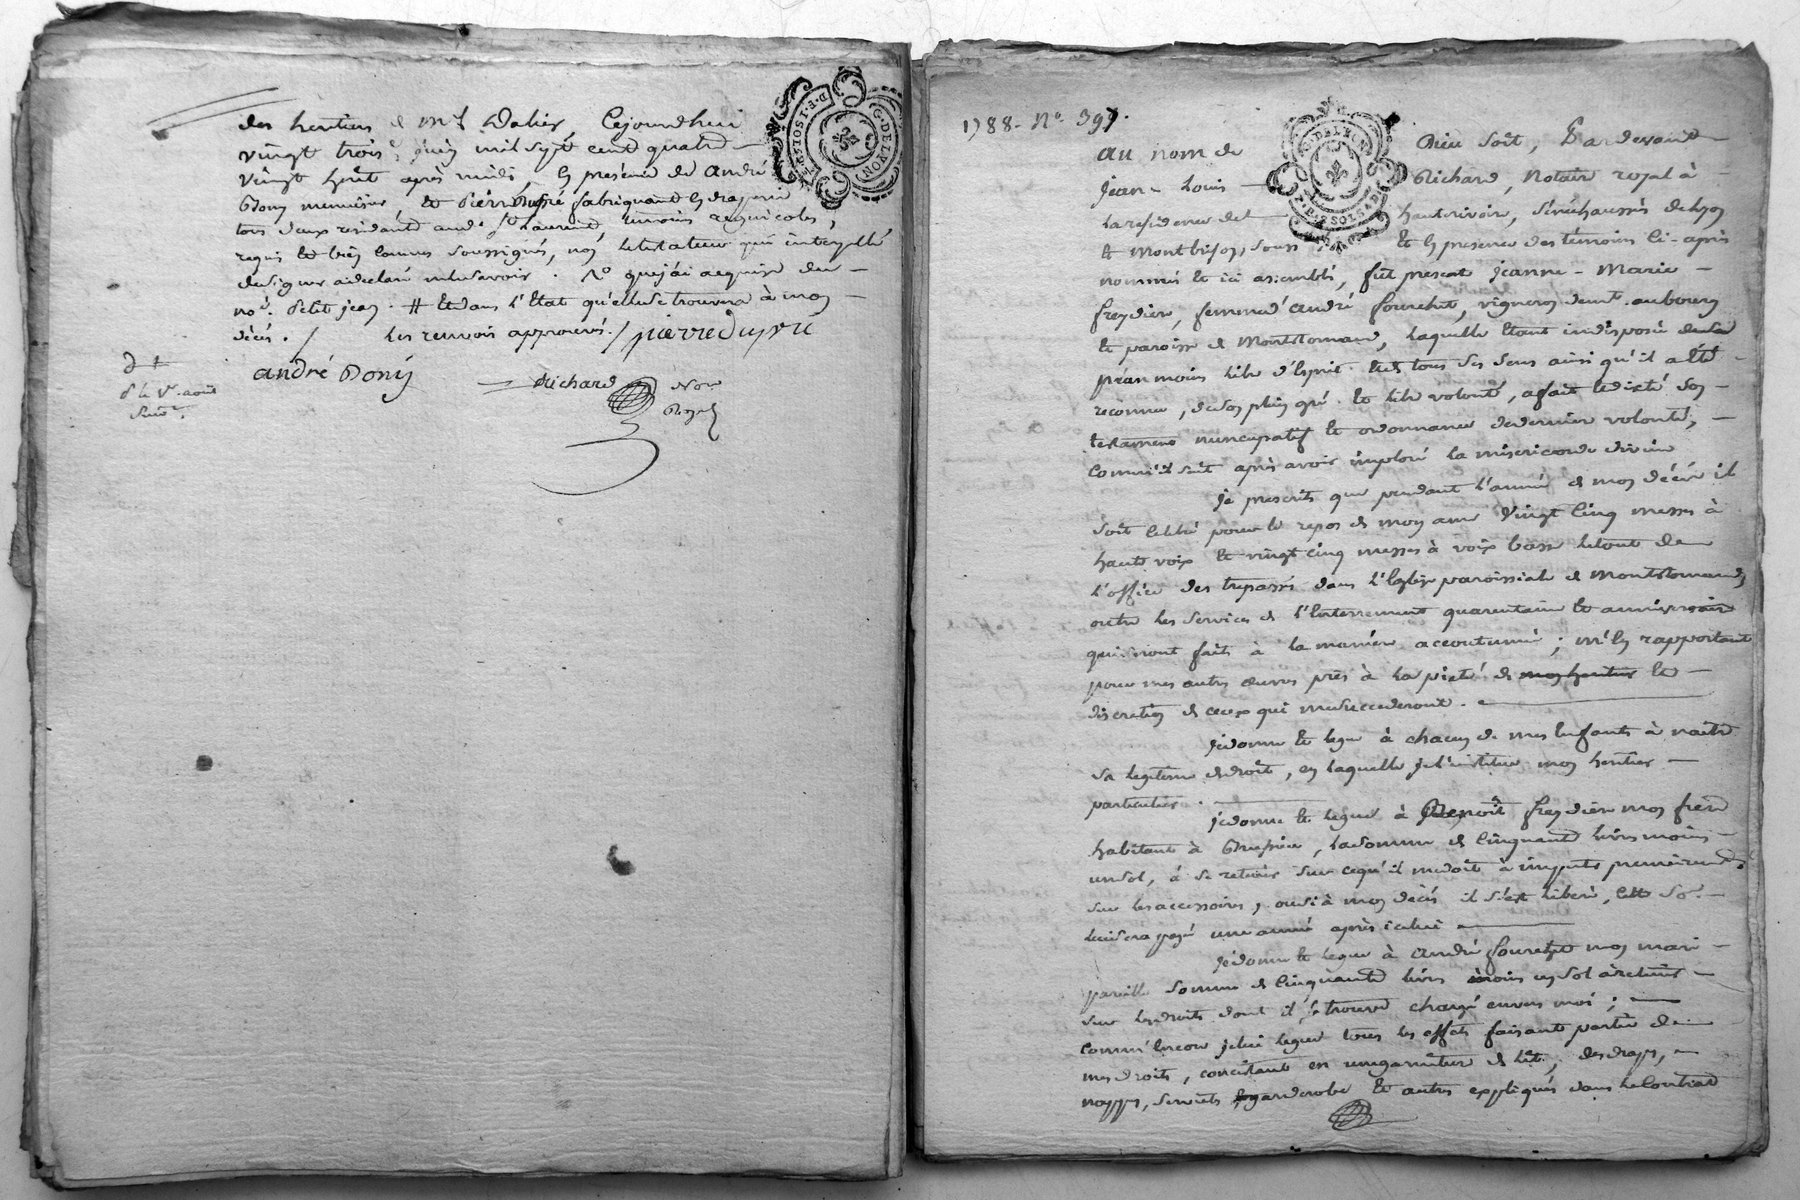 des heritiers de Mr Dalier, Cejourdhui
vingt trois juin mil sept cent quatre
vingt huit après midi en présence de andré
Dony menuisier et Pierre Dupré fabriquant en draperie
tous deux residants aud. St Laurent, temoins
requis et bien connus soussignés, non la testateur qui interpellé
de signer a déclaré ne le savoir. No que j'ai acquise du
no. Petit jean. # et dans l'état qu'elle se trouvera à mon
décès. / les renvois approuvés. / pierre dupré
andré Dony
Richard Nore
Royal
août
D.E.2.SOLS.P.F.
G. DE LYON
1788. No. 397.
au nom de Dieu soit, Pardevant
Jean-Louis Richard, Notaire royal à
la residence de hauterivoire, sénéchaussée de Lyon
et Montbrison, soussigné et en presence des témoins ci-après
nommés et ici assemblés, fut present jeanne-Marie
freydière, femme d'andré fouretut, vigneron
et paroisse de Montromand, laquelle étant indisposée
néan moins libre d'esprit et de tous ses sens ainsi qu'il a été
reconnu, de son plein gré et libre volonté, a fait et dicté son
testament nuncupatif et ordonnance de dernier volonté,
comme il suit après avoir imploré la misericorde divine
Je prescrits que pendant l'année de mon décès il
soit celebré pour le repos de mon ame vingt cinq messes à
haute voix et vingt cinq messes à voix basse le tout de
l'office des trepassés dans l'Eglise paroissiale de Montromand,
outre les services de l'Enterrement quarantaine et anniversaire
qui seront faits à la manière accoutumée; m'en rapportant
pour mes autres œuvres pies à la pieté de mes heritiers et
discretion de ceux qui me succederont.
Je donne et legue à chacun de mes Enfants à naitre
sa legitime de droit, en laquelle je l'institue mon heritier
particulier.
je donne et legue à Benoit freydière mon frere
habitant à Brussieu, la somme de cinquante livres moins
un sol, à se retenir sur ce qu'il me doit à imputer premierement
sur les accessoires, ou si à mon décès il s'est liberé, cette so.e
lui sera payé une année après icelui
Je donne et legue à André fouretut mon mari
pareille somme de cinquante livres moins un sol à retenir
sur les droits dont il se trouve chargé envers moi;
comm'Encore je lui legue tous les effets faisant partie de
mes droits, consistant en une garniture de lit, des draps,
nappes, serviets, garderobe et autres expliqués dans le Contrat